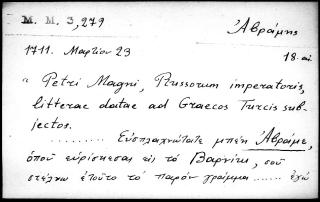 M. M. 3,279
Ἀβράμης
1711. Μαρτίου 23
18. αἰ.
"Petri Magni, Russorum imperatoris,
litterae datae ad Graecos Turcis sub-
jectos.
....... Εὐσπλαχνώτατε μπέη Ἀβράμε,
ὁποῦ εὑρίσκεσαι εἰς τὸ Βαρνίτι, σοῦ
στέλνω ἐτοῦτο τὸ παρὸν γράμμα ....... ἐγὼ